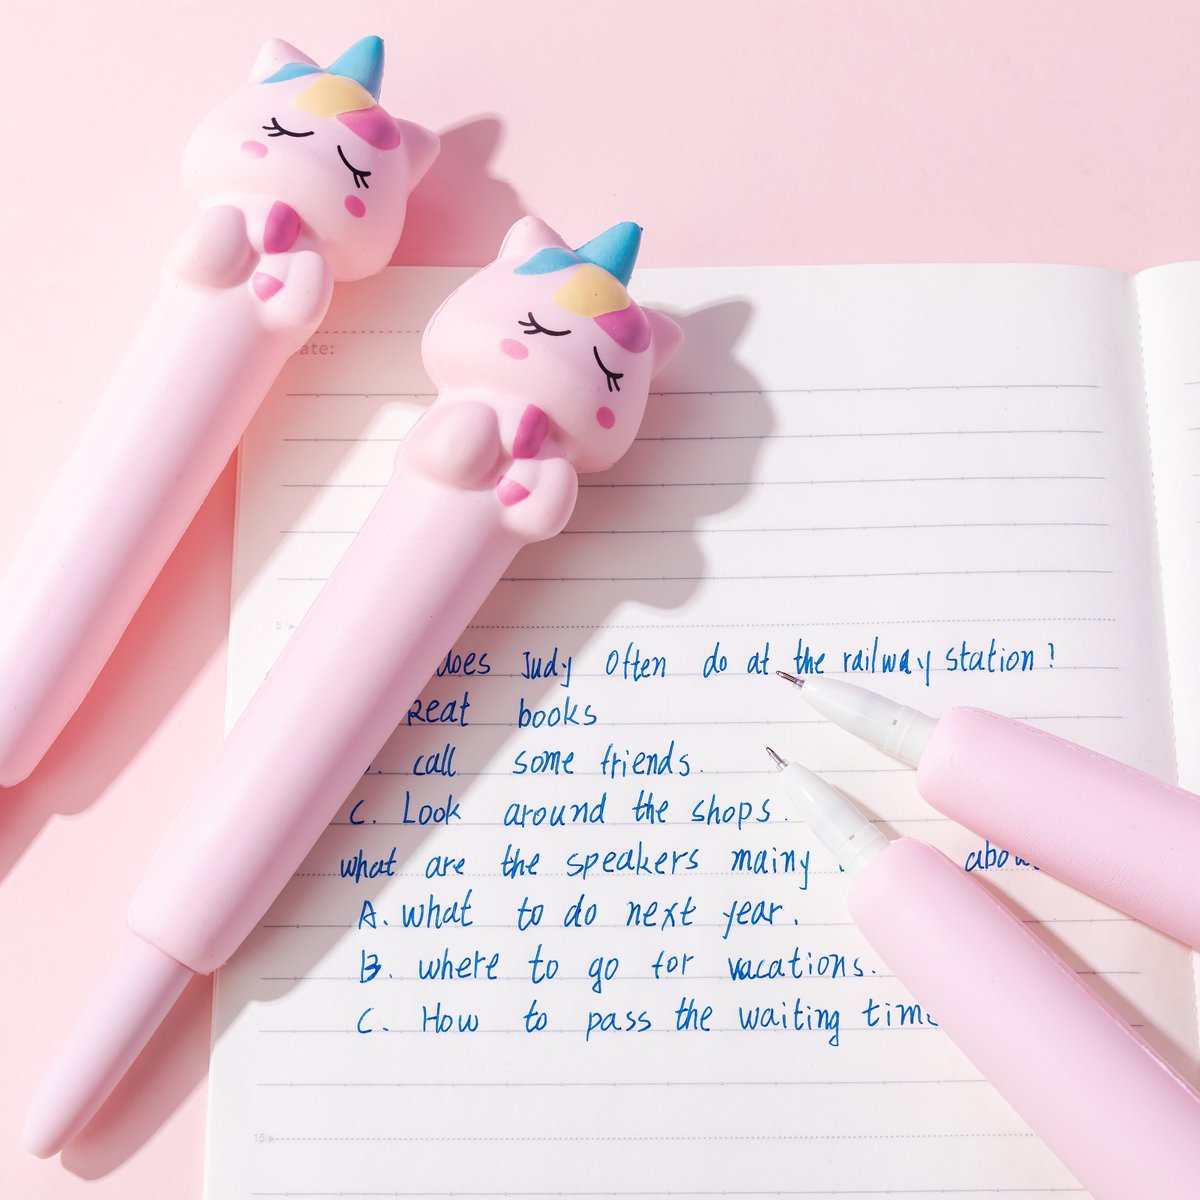 ate:
5
does Judy Often do at the railway station?
Reat books
call some friends.
C. Look around the shops.
what are the speakers mainy
A. what to do next year.
B. where to go for vacations.
C. How to pass the waiting
15